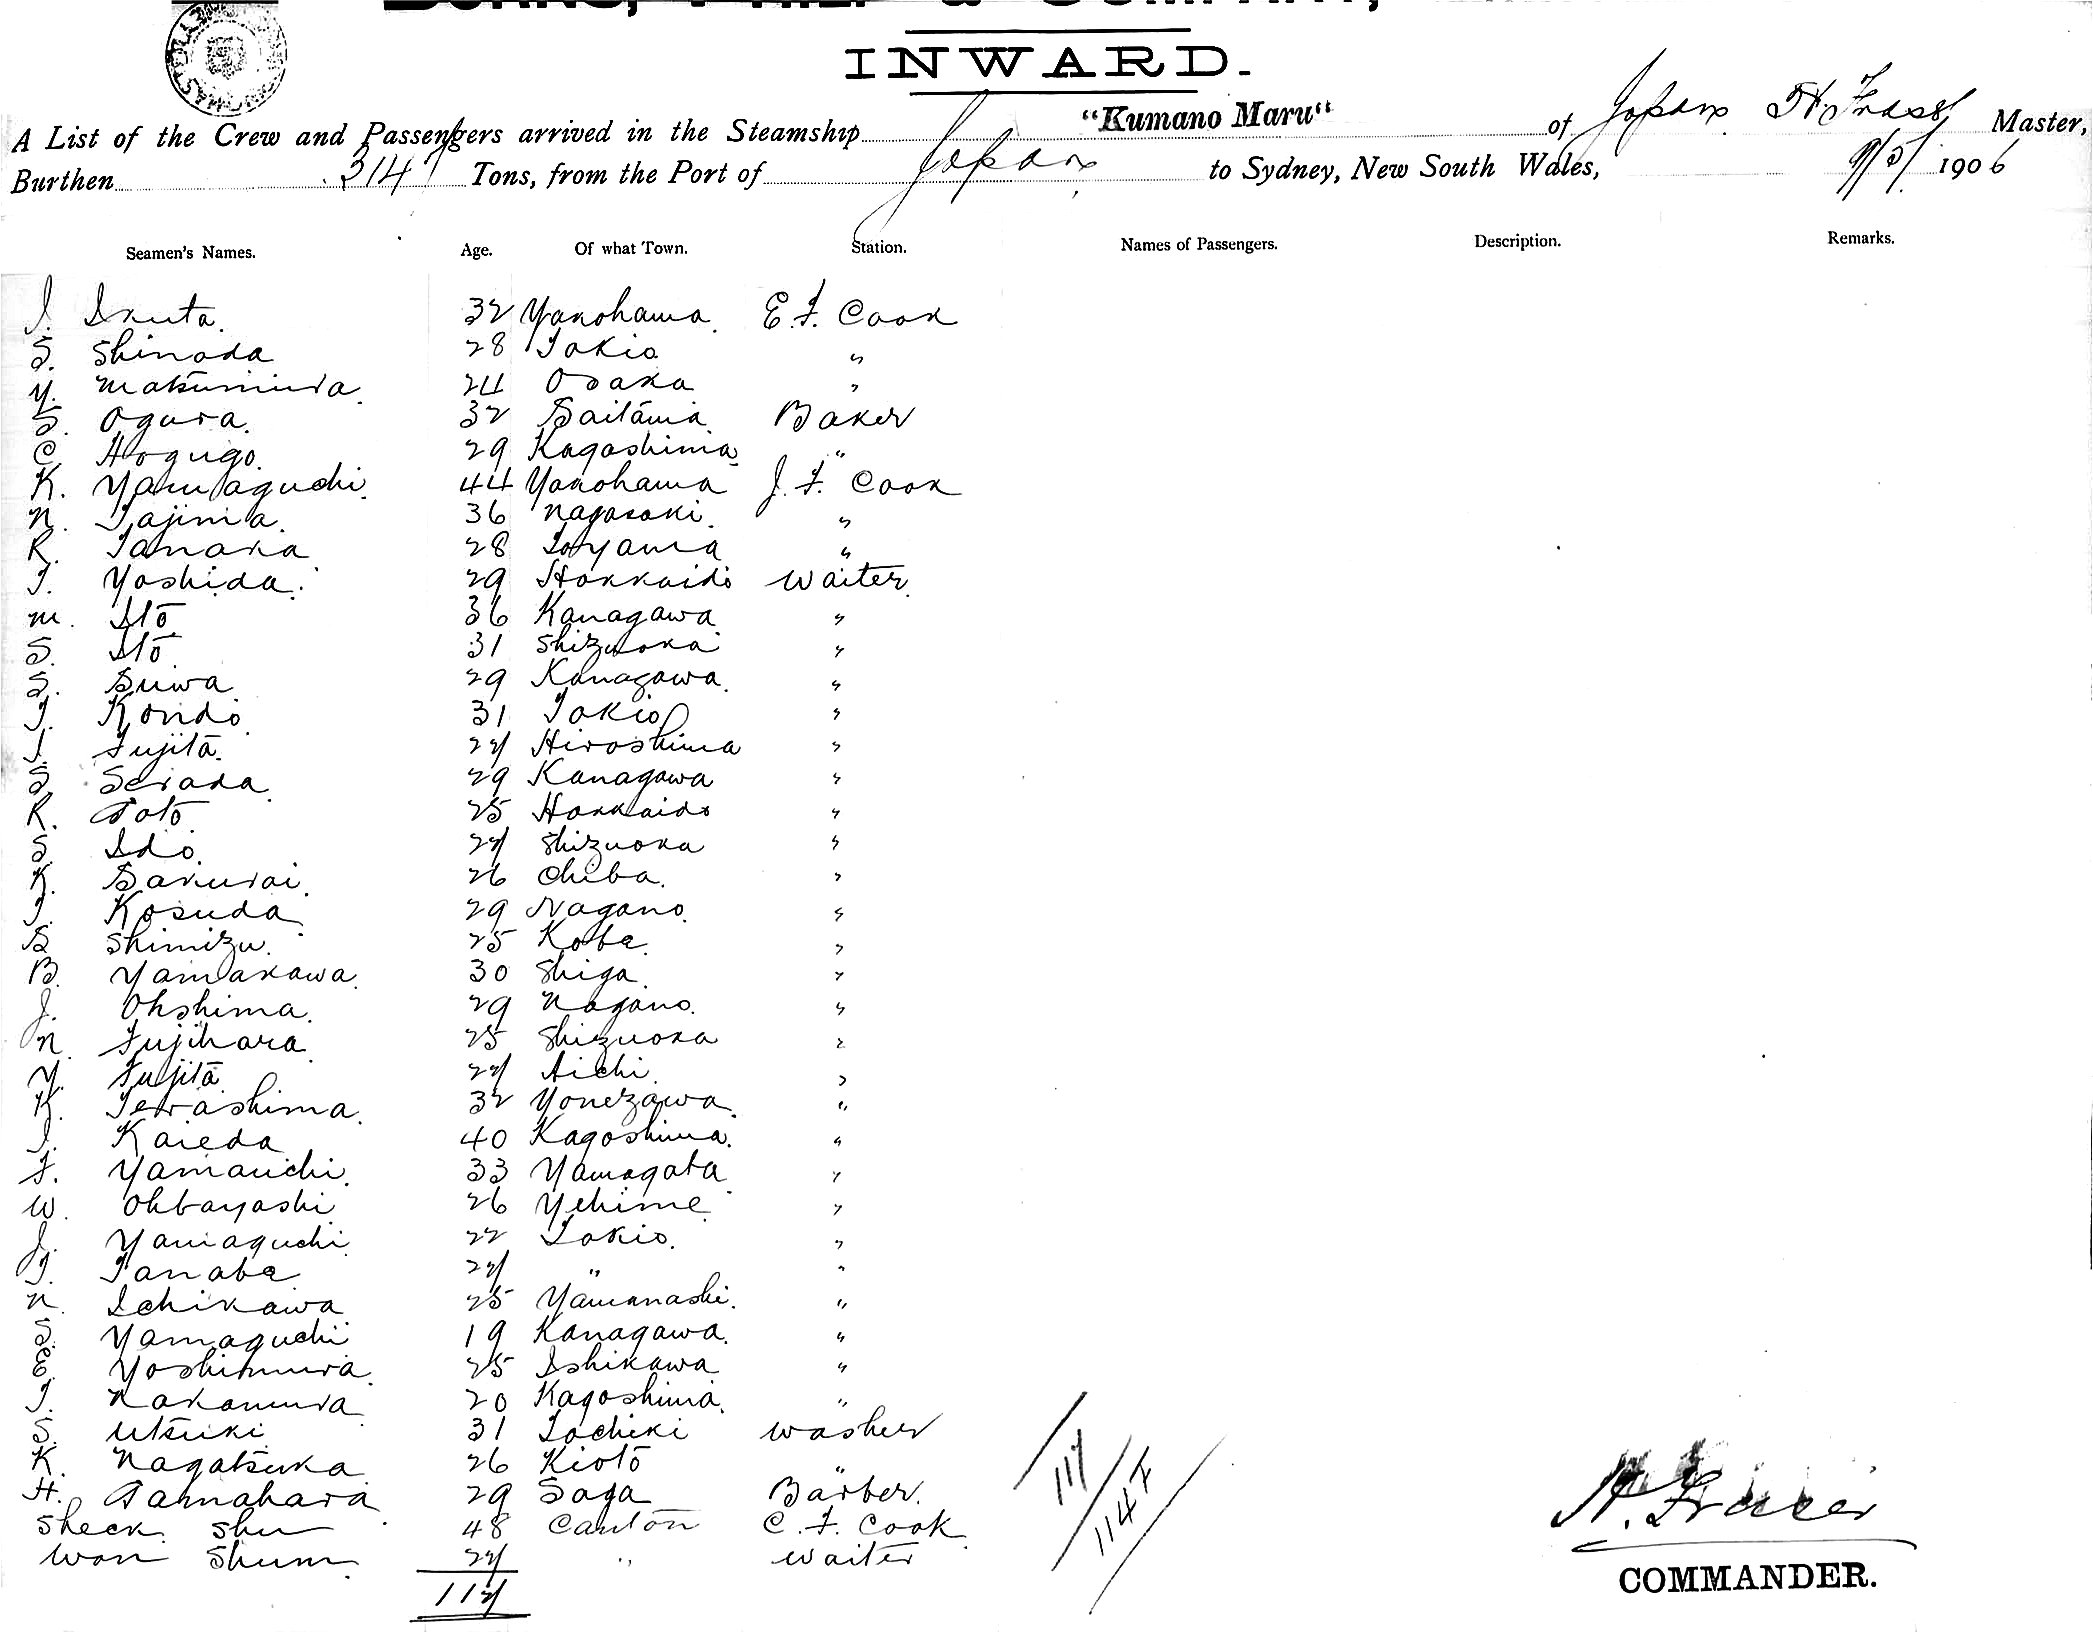 INWARD.
A List of the Crew and Passengers arrived in the Steamship "Kumano Maru" of Japan H. Fraser Master,
Burthen 3147 Tons, from the Port of Japan to Sydney, New South Wales, 9/5/ 1906
Seamen's Names. Age. Of what Town. Station. Names of Passengers. Description. Remarks.
I. Ikuta. 32 Yokohama. E. F. Cook
S. Shinoda 28 Tokio "
Y. Matsumura. 24 Osaka "
S. Ogura. 32 Saitama Baker
C. Hogugo. 29 Kagoshima "
K. Yamaguchi. 44 Yokohama J. F. Cook
N. Tajima. 36 Nagasaki. "
R. Tanaka 28 Toyama "
T. Yoshida. 29 Hokkaido Waiter.
M. Ito 36 Kanagawa "
S. Ito 31 Shizuoka "
S. Suwa 29 Kanagawa. "
T. Kondo 31 Tokio "
I. Fujita. 27 Hiroshima "
S. Serada. 29 Kanagawa "
K. Goto 25 Hokkaido "
S. Ido. 27 Shizuoka "
K. Sakurai. 26 Chiba. "
T. Kosuda 29 Nagano. "
S. Shimizu. 25 Kobe. "
B. Yamakawa. 30 Shiga "
J. Ohshima. 29 Nagano. "
N. Fujihara 25 Shizuoka "
Y. Fujita 27 Aichi. "
K. Terashima. 32 Yonezawa. "
I. Kaieda 40 Kagoshima. "
F. Yamauchi. 33 Yamagata "
W. Ohbayashi 26 Yehime "
J. Yamaguchi 22 Tokio. "
T. Tanabe 27 " "
N. Ichikawa 25 Yamanashi. "
S. Yamaguchi 19 Kanagawa. "
E. Yoshimura. 25 Ishikawa "
T. Nakamura 20 Kagoshima. "
S. Utsuki 31 Tochiki Washer
K. Nagatsuka 26 Kioto "
H. Tamahara 29 Saga Barber.
Sheck Shu 48 Canton C. F. Cook
Won Shum. 27 " Waiter
117
117
1147
H. Fraser
COMMANDER.